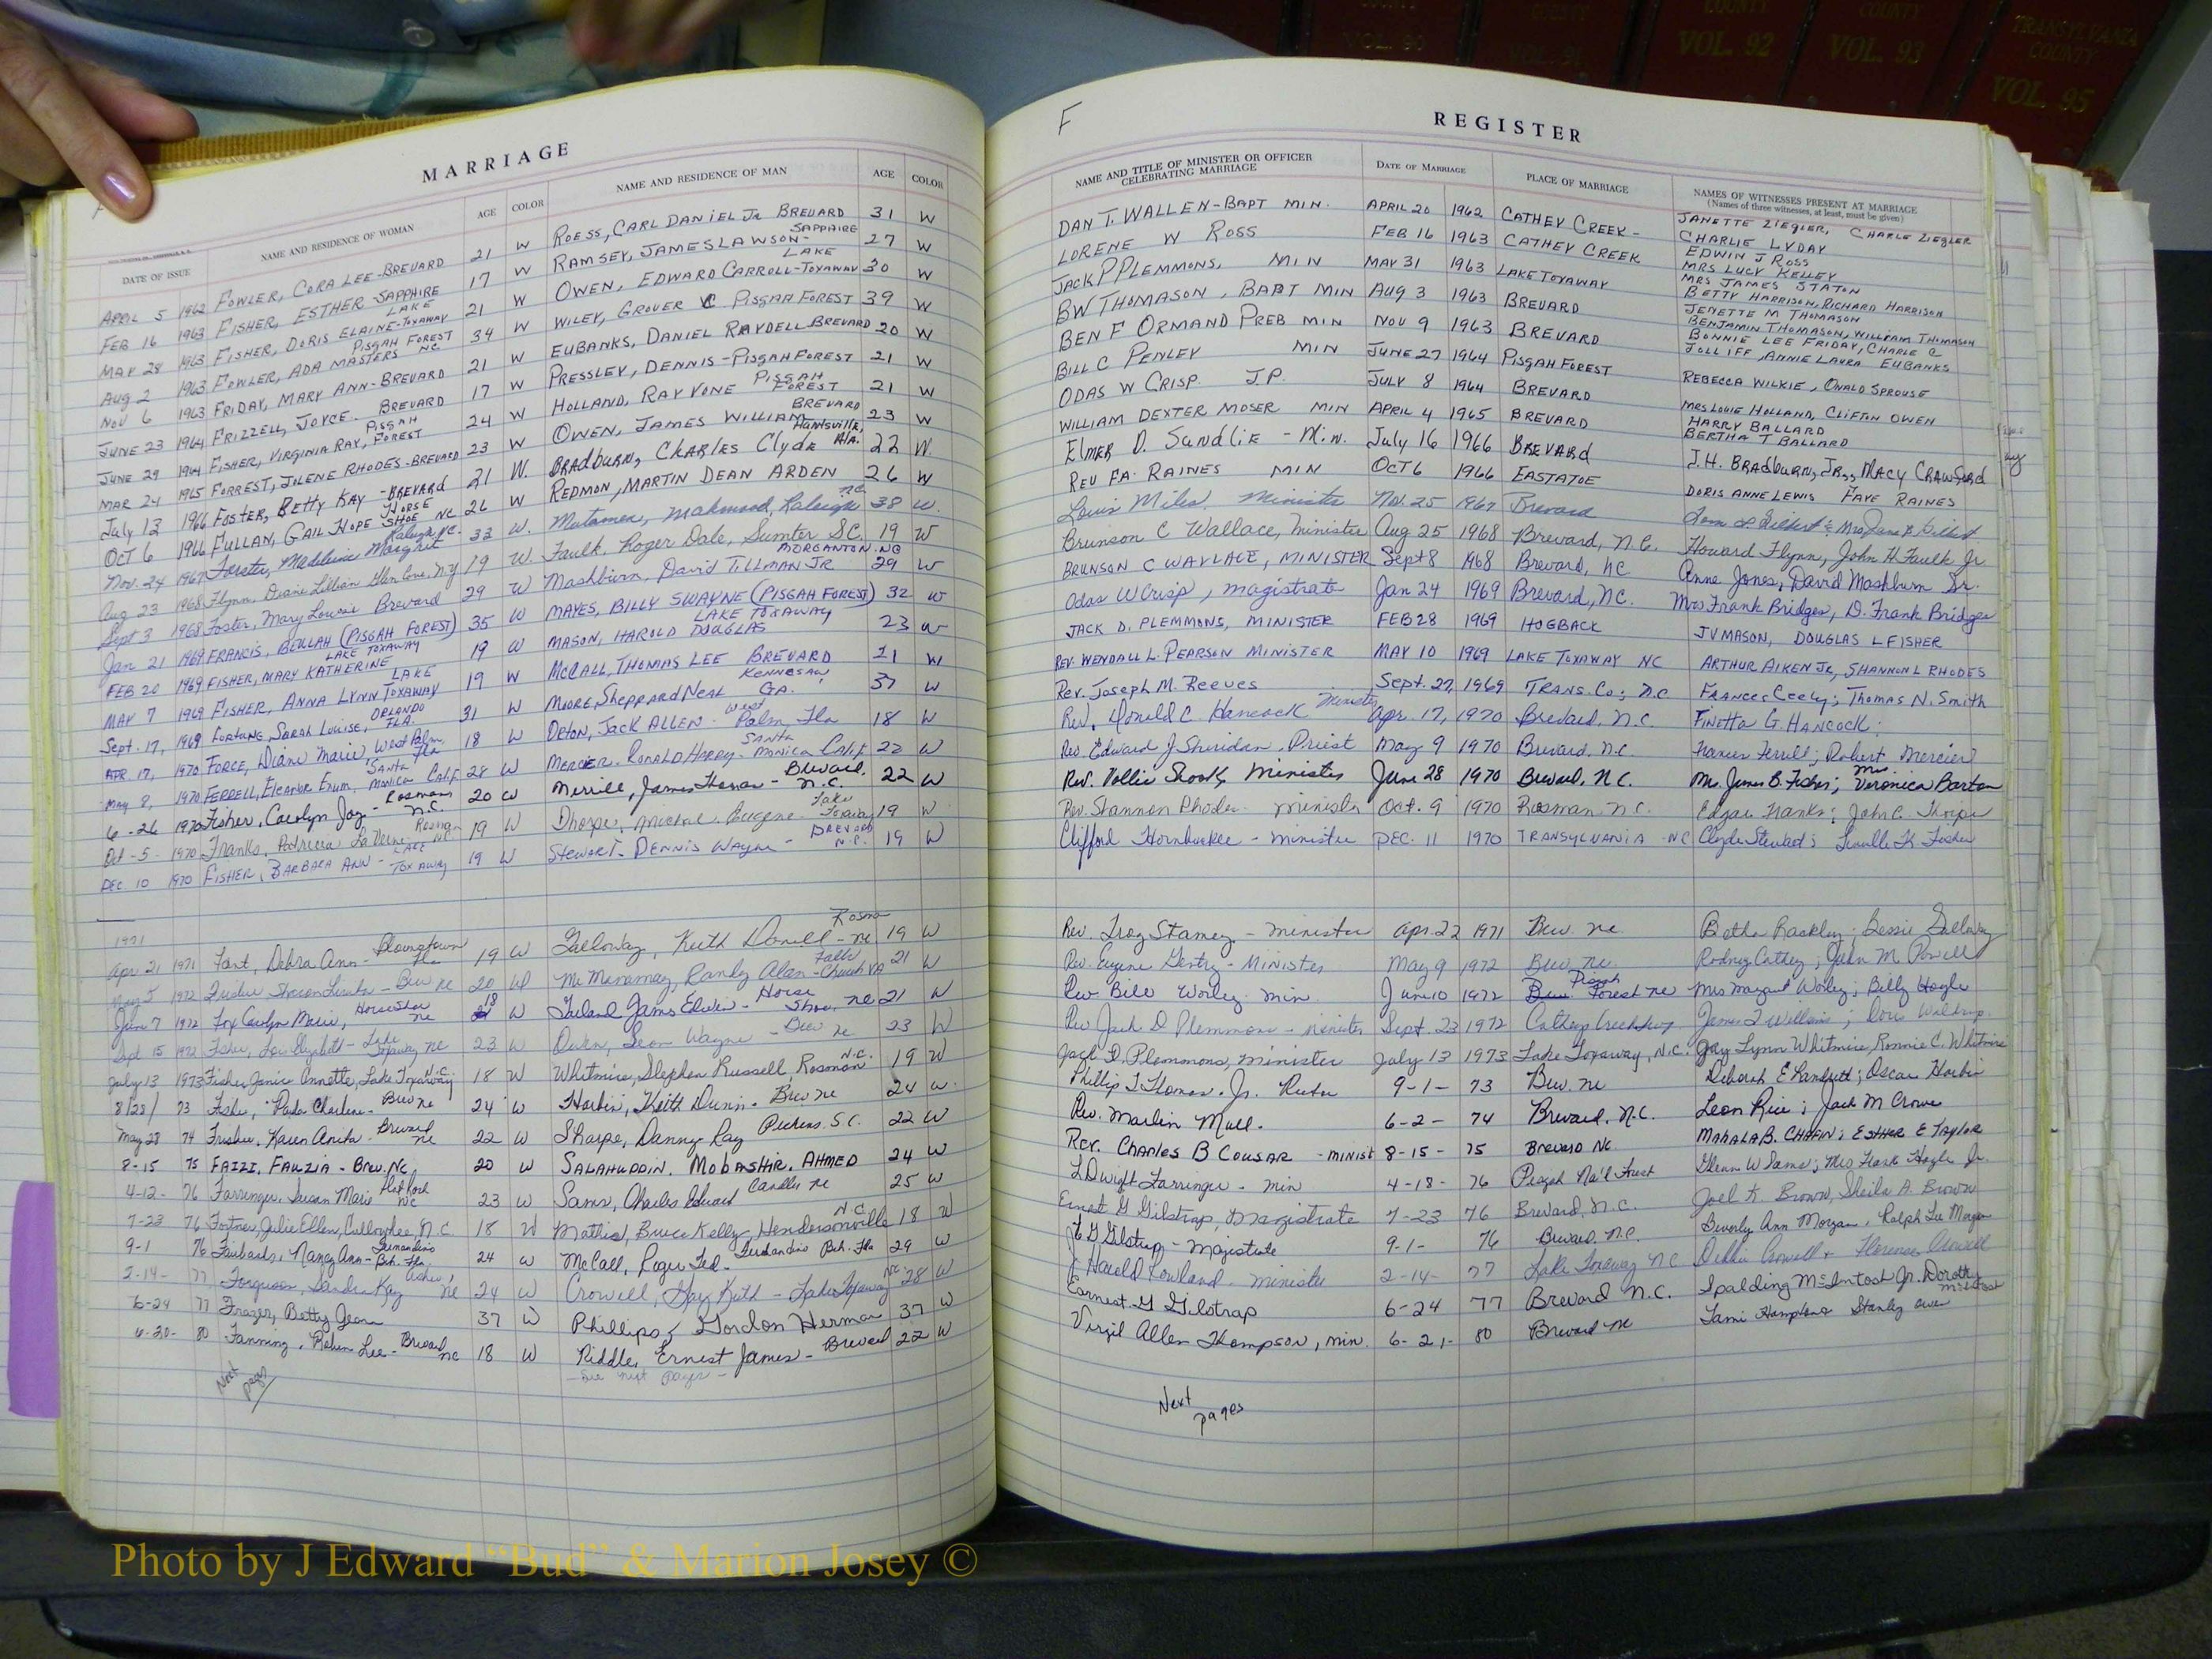 COUNTY COUNTY COUNTY COUNTY TRANSYLVANIA
VOL. 90 VOL. 91 VOL. 92 VOL. 93 COUNTY
VOL. 95
MARRIAGE
DATE OF ISSUE NAME AND RESIDENCE OF WOMAN AGE COLOR NAME AND RESIDENCE OF MAN AGE COLOR
APRIL 5 1962 FOWLER, CORA LEE-BREVARD 21 W ROESS, CARL DANIEL JR BREVARD 31 W
FEB 16 1963 FISHER, ESTHER SAPPHIRE 17 W RAMSEY, JAMES LAWSON- SAPPHIRE 27 W
MAY 28 1963 FISHER, DORIS ELAINE-LAKE TOXAWAY 21 W OWEN, EDWARD CARROLL-LAKE TOXAWAY 30 W
AUG 2 1963 FOWLER, ADA MASTERS PISGAH FOREST NC 34 W WILEY, GROVER C PISGAH FOREST 39 W
NOV 6 1963 FRIDAY, MARY ANN-BREVARD 21 W EUBANKS, DANIEL RAYDELL BREVARD 20 W
JUNE 23 1964 FRIZZELL, JOYCE. BREVARD 17 W PRESSLEY, DENNIS-PISGAH FOREST 21 W
JUNE 29 1964 FISHER, VIRGINIA RAY, PISGAH FOREST 24 W HOLLAND, RAYVONE PISGAH FOREST 21 W
MAR 24 1965 FORREST, JOLENE RHODES-BREVARD 23 W OWEN, JAMES WILLIAM BREVARD 23 W
July 13 1966 FOSTER, BETTY KAY -BREVARD 21 W. BRADBURN, CHARLES Clyde Huntsville, Ala. 22 W.
OCT 6 1966 FULLAN, GAIL HOPE HORSE SHOE NC 26 W REDMON, MARTIN DEAN ARDEN 26 W
Nov. 24 1967 Forster, Madeleine Margrit Raleigh NC. 33 W. Mutamen, Mahmood, Raleigh NC 38 W.
Aug 23 1968 Flynn, Diane Lillian Glen Cove, N.Y. 19 W Faulk, Roger Dale, Sumter S.C. 19 W
Sept 3 1968 Foster, Mary Louise Brevard 29 W Mashburn, David TILLMAN JR MORGANTON. NC 29 W
Jan 21 1969 FRANCIS, BEULAH (PISGAH FOREST) 35 W MAYES, BILLY SWAYNE (PISGAH FOREST) 32 W
FEB 20 1969 FISHER, MARY KATHERINE LAKE TOXAWAY 19 W MASON, HAROLD DOUGLAS LAKE TOXAWAY 23 W
MAY 7 1969 FISHER, ANNA LYNN LAKE TOXAWAY 19 W McCALL, THOMAS LEE BREVARD 21 W
Sept. 17, 1969 Fortune, Sarah Louise, ORLANDO FLA. 31 W Moore, Sheppard Neal KENNESAW GA. 37 W
APR. 17, 1970 FORCE, Diane Marie, West Palm, Fla 18 W ORTON, JACK ALLEN - West Palm, Fla 18 W
May 8, 1970 FERRELL, Eleanor Enum, Santa Monica Calif 28 W MERCIER, RONALD HARRY- Santa Monica Calif 22 W
6-26 1970 Fisher, Carolyn Joy - Rosman N.C. 20 W Merrill, James - Brevard, N.C. 22 W
Oct-5- 1970 Franks, Patricia LaVerne- Rosman NC 19 W Thorpe, Michael Eugene- Lake Toxaway 19 W
DEC 10 1970 FISHER, BARBARA ANN - LAKE TOXAWAY 19 W STEWART- DENNIS WAYNE - BREVARD N.C. 19 W
1971
Apr 21 1971 Fant, Debra Ann- Fla 19 W Galloway, Keith Donell - Rosman NC 19 W
May 5 1972 - Brev NC 20 W Mc Menamay, Randy Alan - Falls Church VA 21 W
June 7 1972 Fox Carolyn Marie, Horse Shoe NC 18 W James Edwin - Horse Shoe. NC 21 W
Sept 15 1972 Fisher, Elizabeth - Lake Toxaway NC 23 W Owen, Leon Wayne - Brev NC 23 W
July 13 1973 Fisher, Janice Annette, Lake Toxaway N.C. 18 W Whitmire, Stephen Russell, Rosman N.C. 19 W
8/28/ 73 Fisher, Paula Charlene- Brev NC 24 W Harbin, Keith Dunn - Brev NC 24 W
May 28 74 Frisbee, Karen Anita- Brevard NC 22 W Sharpe, Danny Ray Pickens. S.C. 22 W
8-15 75 FAIZI, FAUZIA - Brev. NC 20 W SALAHUDDIN, MOBASHIR, AHMED 24 W
4-12- 76 Farringer, Susan Marie Flat Rock NC 23 W Sams, Charles Edward Candler NC 25 W
7-23 76 Fortner, Julie Ellen, Cullowhee, N.C. 18 W Mathis, Bruce Kelly, Hendersonville N.C. 18 W
9-1 76 Fairbanks, Nancy Ann- Fernandina Bch. Fla. 24 W McCall, Roger Ted- Fernandina Bch. Fla 29 W
2-14- 77 Ferguson, Sandra Kay NC 24 W Crowell, Gary Keith - Lake Toxaway NC 28 W
6-24 77 Frazer, Betty Jean 37 W Phillips, Gordon Herman 37 W
6-20- 80 Fanning, Robin Lee- Brevard NC 18 W Riddle, Ernest James- Brevard 22 W
Next page
- See next pages -
F
REGISTER
NAME AND TITLE OF MINISTER OR OFFICER CELEBRATING MARRIAGE DATE OF MARRIAGE PLACE OF MARRIAGE NAMES OF WITNESSES PRESENT AT MARRIAGE
(Names of three witnesses, at least, must be given)
DAN T. WALLEN-BAPT MIN. APRIL 20 1962 CATHEY CREEK- JANETTE ZIEGLER, CHARLE ZIEGLER
LORENE W ROSS FEB 16 1963 CATHEY CREEK CHARLIE LYDAY EDWIN J ROSS
JACK P PLEMMONS, MIN MAY 31 1963 LAKE TOXAWAY MRS LUCY KELLEY MRS JAMES STATON
BW THOMASON, BAPT MIN AUG 3 1963 BREVARD BETTY HARRISON, RICHARD HARRISON JENETTE M THOMASON
BEN F ORMAND PREB MIN NOV 9 1963 BREVARD BENJAMIN THOMASON, WILLIAM THOMASON BONNIE LEE FRIDAY, CHARLE C
BILL C PENLEY MIN JUNE 27 1964 PISGAH FOREST JOLLIFF, ANNIE LAURA EUBANKS
ODAS W CRISP J.P. JULY 8 1964 BREVARD REBECCA WILKIE, OWALD SPROUSE
WILLIAM DEXTER MOSER MIN APRIL 4 1965 BREVARD MRS LOUIE HOLLAND, CLIFTON OWEN HARRY BALLARD BERTHA T BALLARD
ELMER D. Sandlie - Min. July 16 1966 BREVARD J.H. BRADBURN, JR., MACY CRAWFORD
REV FA. RAINES MIN OCT 6 1966 EASTATOE DORIS ANNE LEWIS FAYE RAINES
Louis Miles, Minister Nov. 25 1967 Brevard Tom S. Gilbert & Mrs Jane P. Gilbert
Brunson C Wallace, Minister Aug 25 1968 Brevard, N.C. Howard Flynn, John H. Faulk Jr.
BRUNSON C WALLACE, MINISTER Sept 8 1968 Brevard, NC Anne Jones, David Mashburn Sr.
Odas W Crisp, Magistrate Jan 24 1969 Brevard, N.C. Mrs Frank Bridges, D. Frank Bridges
JACK D. PLEMMONS, MINISTER FEB 28 1969 HOGBACK JV MASON, DOUGLAS L FISHER
REV. WENDALL L. PEARSON MINISTER MAY 10 1969 LAKE TOXAWAY NC ARTHUR AIKEN JR, SHANNON L RHODES
Rev. Joseph M. Reeves Sept. 27, 1969 TRANS. Co., N.C Frances Ceely; Thomas N. Smith
Rev. Donald C. Hancock Minister Apr. 17, 1970 Brevard, N.C. Finetta G. HANCOCK.
Rev. Edward J Sheridan, Priest May 9 1970 Brevard. N.C Frances Ferrell; Robert Mercier
Rev. Vollie Shook, Minister June 28 1970 Brevard, N.C. Mr. James B. Fisher; Mrs Veronica Barton
Rev. Shannon Rhodes - minister Oct. 9 1970 Rosman. N.C. Edgar Franks; John C. Thorpe
Clifford Hornbuckle - Minister DEC. 11 1970 TRANSYLVANIA -NC Clyde Stewart; Fisher
Rev. Troy Stamey - Minister Apr. 22 1971 Brev. NC Bertha Rackley; Bessie Galloway
Rev. Eugene Gentry - MINISTER May 9 1972 Brev. NC. Rodney Cathey; John M. Powell
Rev. Bill Worley. Min. June 10 1972 Brev. Pisgah Forest NC Mrs Margaret Worley; Billy Hogle
Rev Jack D Plemmons - Minister Sept. 23 1972 Cathey Creek James
Jack D. Plemmons, Minister July 13 1973 Lake Toxaway, N.C. Gay Lynn Whitmire, Ronnie C. Whitmire
Phillip T Thomas. Jr. 9-1- 73 Brev. NC Deborah E ; Oscar Harbin
Rev. Marlin Mull. 6-2- 74 Brevard. N.C. Leon Rice; Jack M Crowe
Rev. Charles B COUSAR - MINIST 8-15- 75 Brevard NC MAHALA B. CHAPIN; ESTHER E TAYLOR
L Dwight Farringer - Min 4-18- 76 Pisgah Na'l Forest Glenn W Sams; Mrs Frank Hogle Jr.
Ernest G Gilstrap, Magistrate 7-23 76 Brevard, N.C. Joel K. Brown, Sheila A. Brown
E G Gilstrap - Magistrate 9-1- 76 Brevard, N.C. Beverly Ann Morgan, Ralph Lee Morgan
J Harold Rowland - Minister 2-14- 77 Lake Toxaway NC Debbie Crowell & Florence Crowell
Earnest G Gilstrap 6-24 77 Brevard N.C. Spalding McIntosh Jr. Dorothy McIntosh
Virgil Allen Thompson, Min. 6-21- 80 Brevard NC Tami Hampton Stanley Owen
Next pages
Photo by J Edward “Bud” & Marion Josey ©